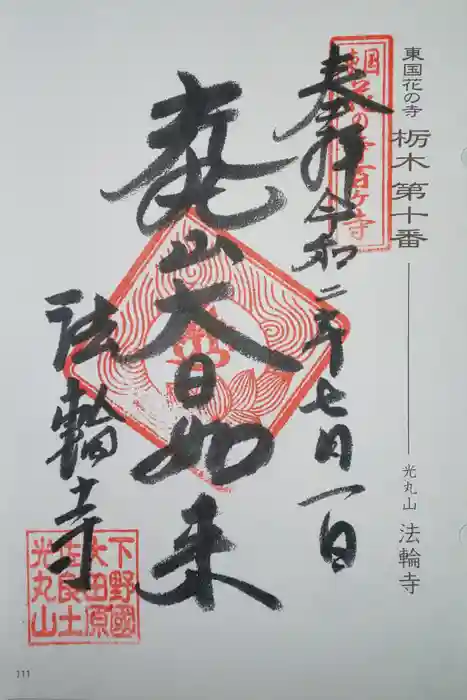 東国花の寺 栃木第十番 光丸山 法輪寺
東国花の寺百ヶ寺
奉拝 令和二年七月一日
光丸山大日如来
法輪寺
下野國
大田原
佐良土
光丸山
111